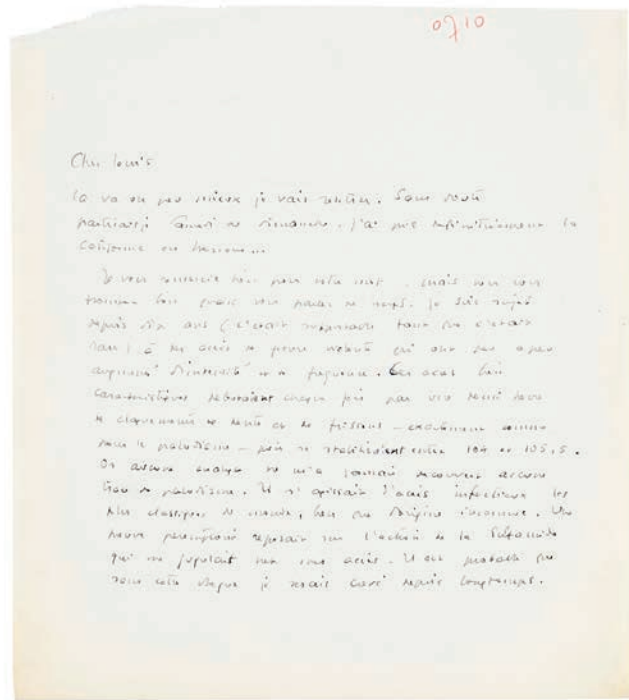 0710
Cher Louis
Ça va un peu mieux je vais rentrer. Sans doute
partirai-je Samedi ou dimanche. J'ai pris définitivement la
Californie en
Je vous remercie bien pour votre mot. mais vous vous
je suis sujet
depuis dix ans (c'était supportable tant que c'était
rare) à des accès de fièvre violente qui ont peu à peu
augmenté d'intensité et de fréquence. Ces accès bien
caractéristiques débutaient chaque fois par une demi heure
de claquement de dents et de frissons – exactement comme
dans le paludisme – puis se stabilisaient entre 104 et 105,5...
Or aucune analyse ne m'a jamais découvert aucune
trace de paludisme. Il s'agissait d'accès infectieux les
plus classiques du monde, bien que d'origine inconnue. Une
preuve péremptoire reposait sur l'action de la Sulfamide
qui me jugulait net mes accès. Il est probable que
sans cette drogue je serais crevé depuis longtemps.